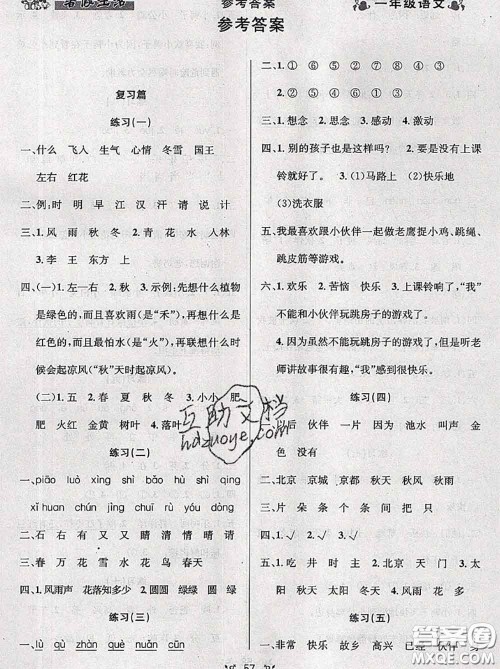 暑假生活
参考答案
一年级语文
参考答案
复习篇
练习(一)
一、什么 飞人 生气 心情 冬雪 国王
左右 红花
二、例:时 明 早 江 汉 汗 请 说 计
三、1.风 雨 秋 冬 2.青 花 水 人林
3.李 王 东方 上
四、(一)1.左—右 2.秋 3.示例:先想什么植物
是绿色的,而且喜欢雨(是“禾”),再想什么是
红色的,而且怕水(是“火”),再想什么时
候会起凉风(“秋”天时起凉风)
(二)1.五 2.春 夏 秋 冬 3.小小 肥
肥 火红 金黄 树叶 4.落叶
练习(二)
一、piāo luò xìng shì bǎo hù shì qīng
xī huan chún jīng chī rù yóu dòng
二、石 右 有 又 又 睛 清 情 晴 请
三、春 万 花 雪 水 冬 花 鸟 春 春
四、1.风雨声 花落知多少 2.圆圆 绿绿 圆 绿
练习(三)
一、lù qù zhàn què nuǎn cǎn
二、① ⑥ ⑤ ④ ③ ②
② ⑤ ④ ⑥ ① ③
三、1.想念 2.思念 3.感动 4.激动
四、1.别的孩子也是这样吗? 2.要是没有上课
铃就好了。 3.(1)马路上 (2)快乐地
(3)洗衣服
五、我最喜欢跟小伙伴一起做老鹰捉小鸡、跳绳、
跳皮筋等游戏。
六、1.欢乐 2.苦恼 快乐 3.上课铃响了,“我”
不能和小伙伴玩跳房子的游戏了。 4.示例:
因为虽然不能玩跳房子的游戏了,但是听老
师讲故事很有趣,“我”感到很快乐。
练习(四)
一、以后 伙伴 一内 因为 池水 叫声 金
色
二、北京 京城 京都 秋天 秋风 秋雨
三、片 朵 条 个 条 间
四、1.√ 2.√ 3.√
五、1.吃 井 时 主 2.北京 天 门 太
阳 秋天 太阳 冬天 3.天气 春风
练习(五)
一、非常 快乐 故乡 高兴 已经 伙伴 身
57
互助文档
hdzuoye.com
答案圈
MXQE.COM